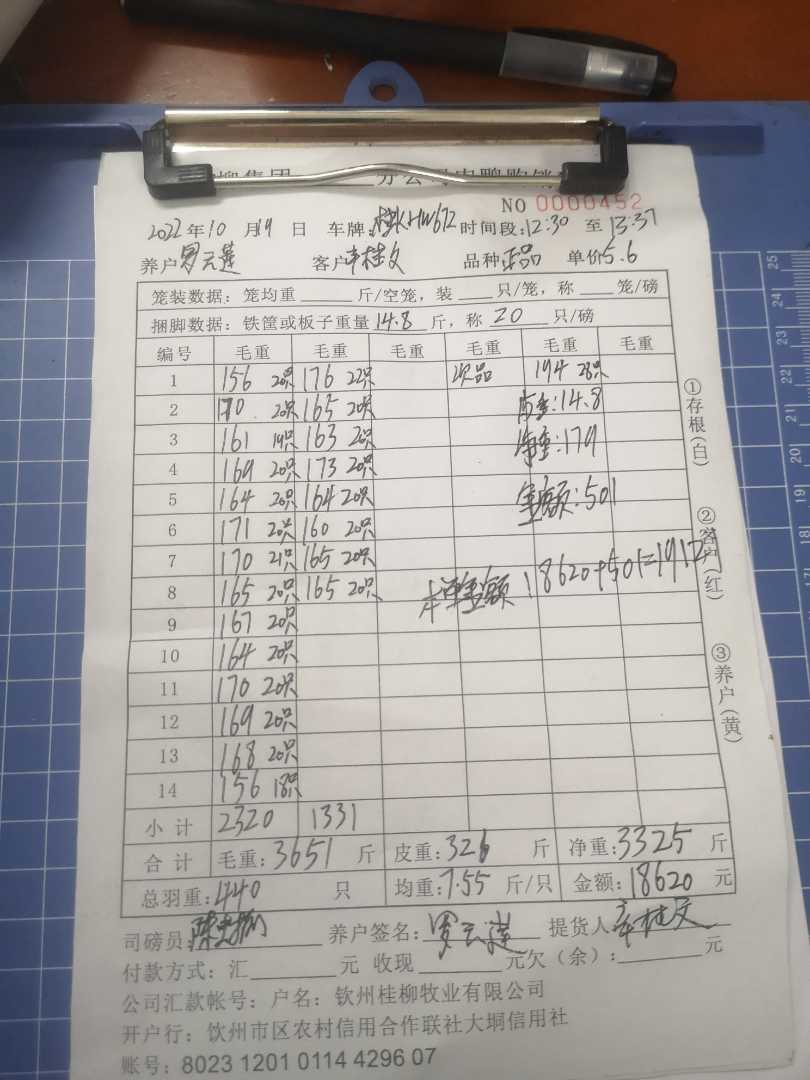 NO 0000452
2022年10月19日 车牌:桂KHW672 时间段:12:30 至 13:37
养户罗云莲 客户辛桂文 品种正品 单价5.6
笼装数据: 笼均重 斤/空笼, 装 只/笼, 称 笼/磅
捆脚数据: 铁筐或板子重量14.8斤, 称20只/磅
编号 毛重 毛重 毛重 毛重 毛重 毛重
1 156 20只 176 22只 次品 194 28只
2 170 20只 165 20只 皮重:14.8
3 161 19只 163 20只 净重:179
4 169 20只 173 20只
5 164 20只 164 20只 金额:501
6 171 20只 160 20只
7 170 21只 165 20只
8 165 20只 165 20只 金额:18620+501=1912
9 167 20只
10 164 20只
11 170 20只
12 169 20只
13 168 20只
14 156 18只
小计 2320 1331
合计 毛重:3651斤 皮重:326斤 净重:3325斤
总羽重:440只 均重:7.55斤/只 金额:18620元
司磅员: 养户签名:罗云莲 提货人辛桂文
付款方式: 汇 元 收现 元欠(余): 元
公司汇款帐号: 户名: 钦州桂柳牧业有限公司
开户行: 饮州市区农村信用合作联社大垌信用社
账号: 8023 1201 0114 4296 07
①存根(白)
②客户(红)
③养户(黄)